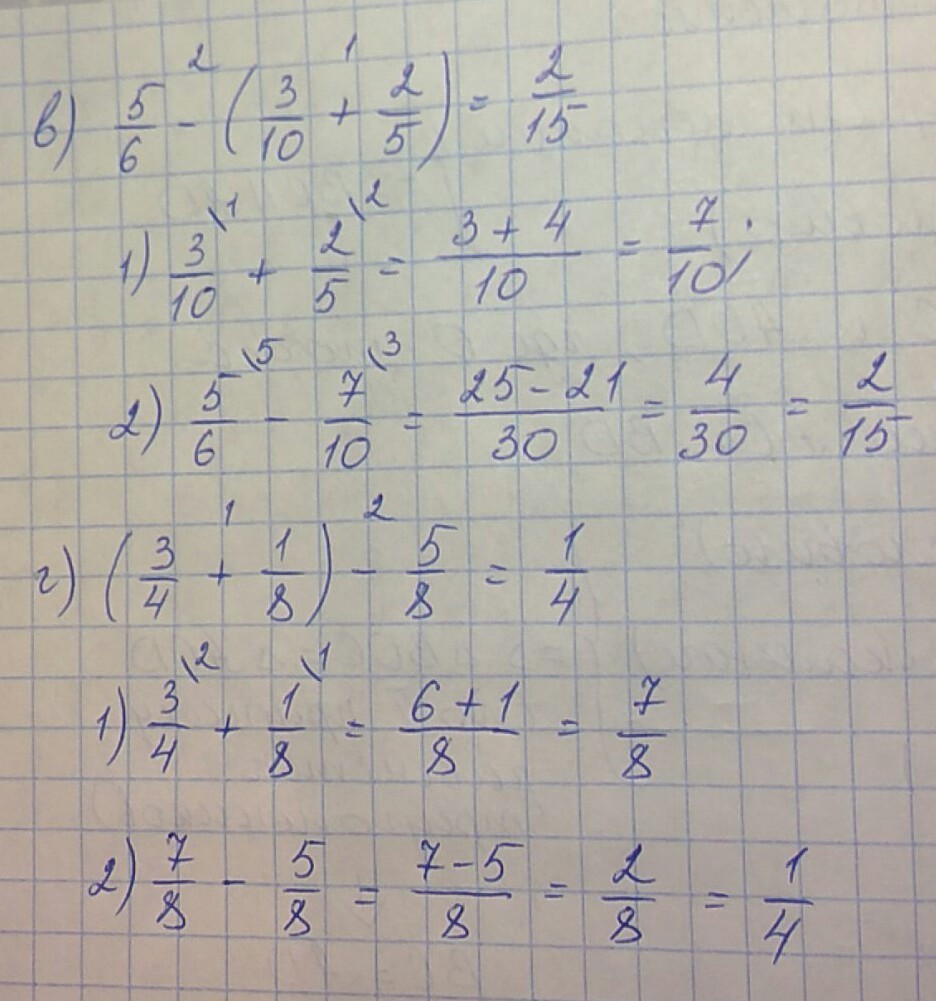 в) 5/6 -² (3/10 +¹ 2/5) = 2/15
1) 3/10 \1 + 2/5 \2 = (3 + 4)/10 = 7/10;
2) 5/6 \5 - 7/10 \3 = (25 - 21)/30 = 4/30 = 2/15
г) (3/4 +¹ 1/8) -² 5/8 = 1/4
1) 3/4 \2 + 1/8 \1 = (6 + 1)/8 = 7/8
2) 7/8 - 5/8 = (7 - 5)/8 = 2/8 = 1/4